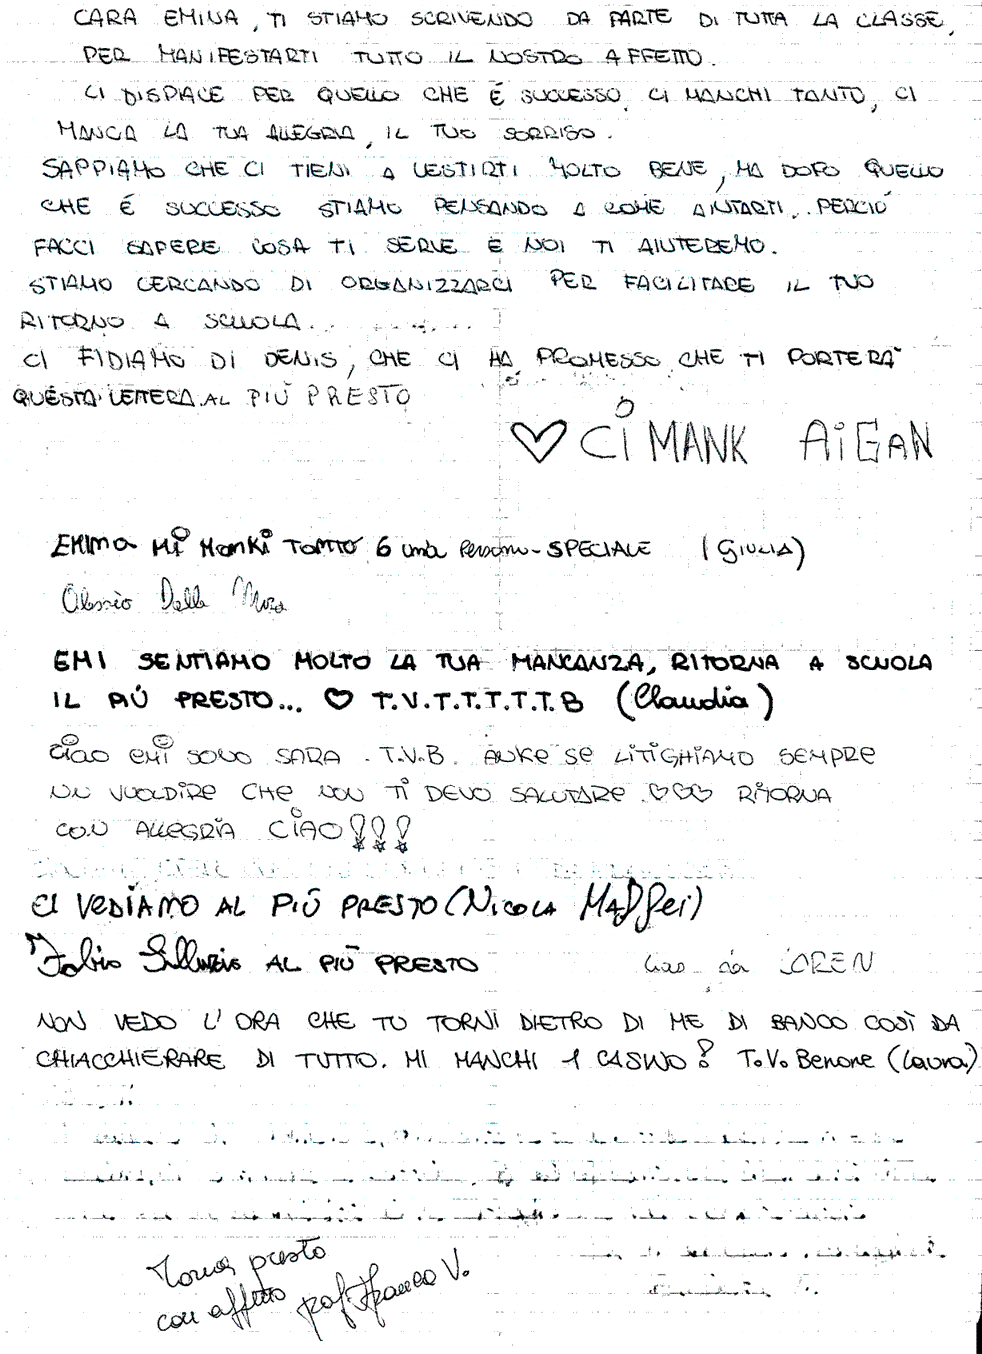 CARA EMINA, TI STIAMO SCRIVENDO DA PARTE DI TUTTA LA CLASSE,
PER MANIFESTARTI TUTTO IL NOSTRO AFFETTO.
CI DISPIACE PER QUELLO CHE É SUCCESSO, CI MANCHI TANTO, CI
MANCA LA TUA ALLEGRIA, IL TUO SORRISO.
SAPPIAMO CHE CI TIENI A VESTIRTI MOLTO BENE, MA DOPO QUELLO
CHE É SUCCESSO STIAMO PENSANDO A COME AIUTARTI. PERCIÓ
FACCI SAPERE COSA TI SERVE E NOI TI AIUTEREMO.
STIAMO CERCANDO DI ORGANIZZARCI PER FACILITARE IL TUO
RITORNO A SCUOLA.
CI FIDIAMO DI DENIS, CHE CI HA PROMESSO CHE TI PORTERÀ
QUESTA LETTERA AL PIÙ PRESTO
♡ CI MANK AIGAN
EMINA MI MANKI TANTO 6 una Persona SPECIALE (GIULIA)
Alessio Della
EMI SENTIAMO MOLTO LA TUA MANCANZA, RITORNA A SCUOLA
IL PIÙ PRESTO... ♡ T.V.T.T.T.T.T.B (Claudia)
CIAO EMI SONO SARA. T.V.B. ANKE SE LITIGHIAMO SEMPRE
NN VUOLDIRE CHE NON TI DEVO SALUTARE ♡♡♡ RITORNA
CON ALLEGRIA CIAO!!!
CI VEDIAMO AL PIÙ PRESTO (NICOLA MAFFei)
Fabio AL PIÙ PRESTO
Ciao da LOREN
NON VEDO L'ORA CHE TU TORNI DIETRO DI ME DI BANCO COSÌ DA
CHIACCHIERARE DI TUTTO. MI MANCHI 1 CASINO! T.V. Benone (Laura)
Torna presto
con affetto prof. Franco V.